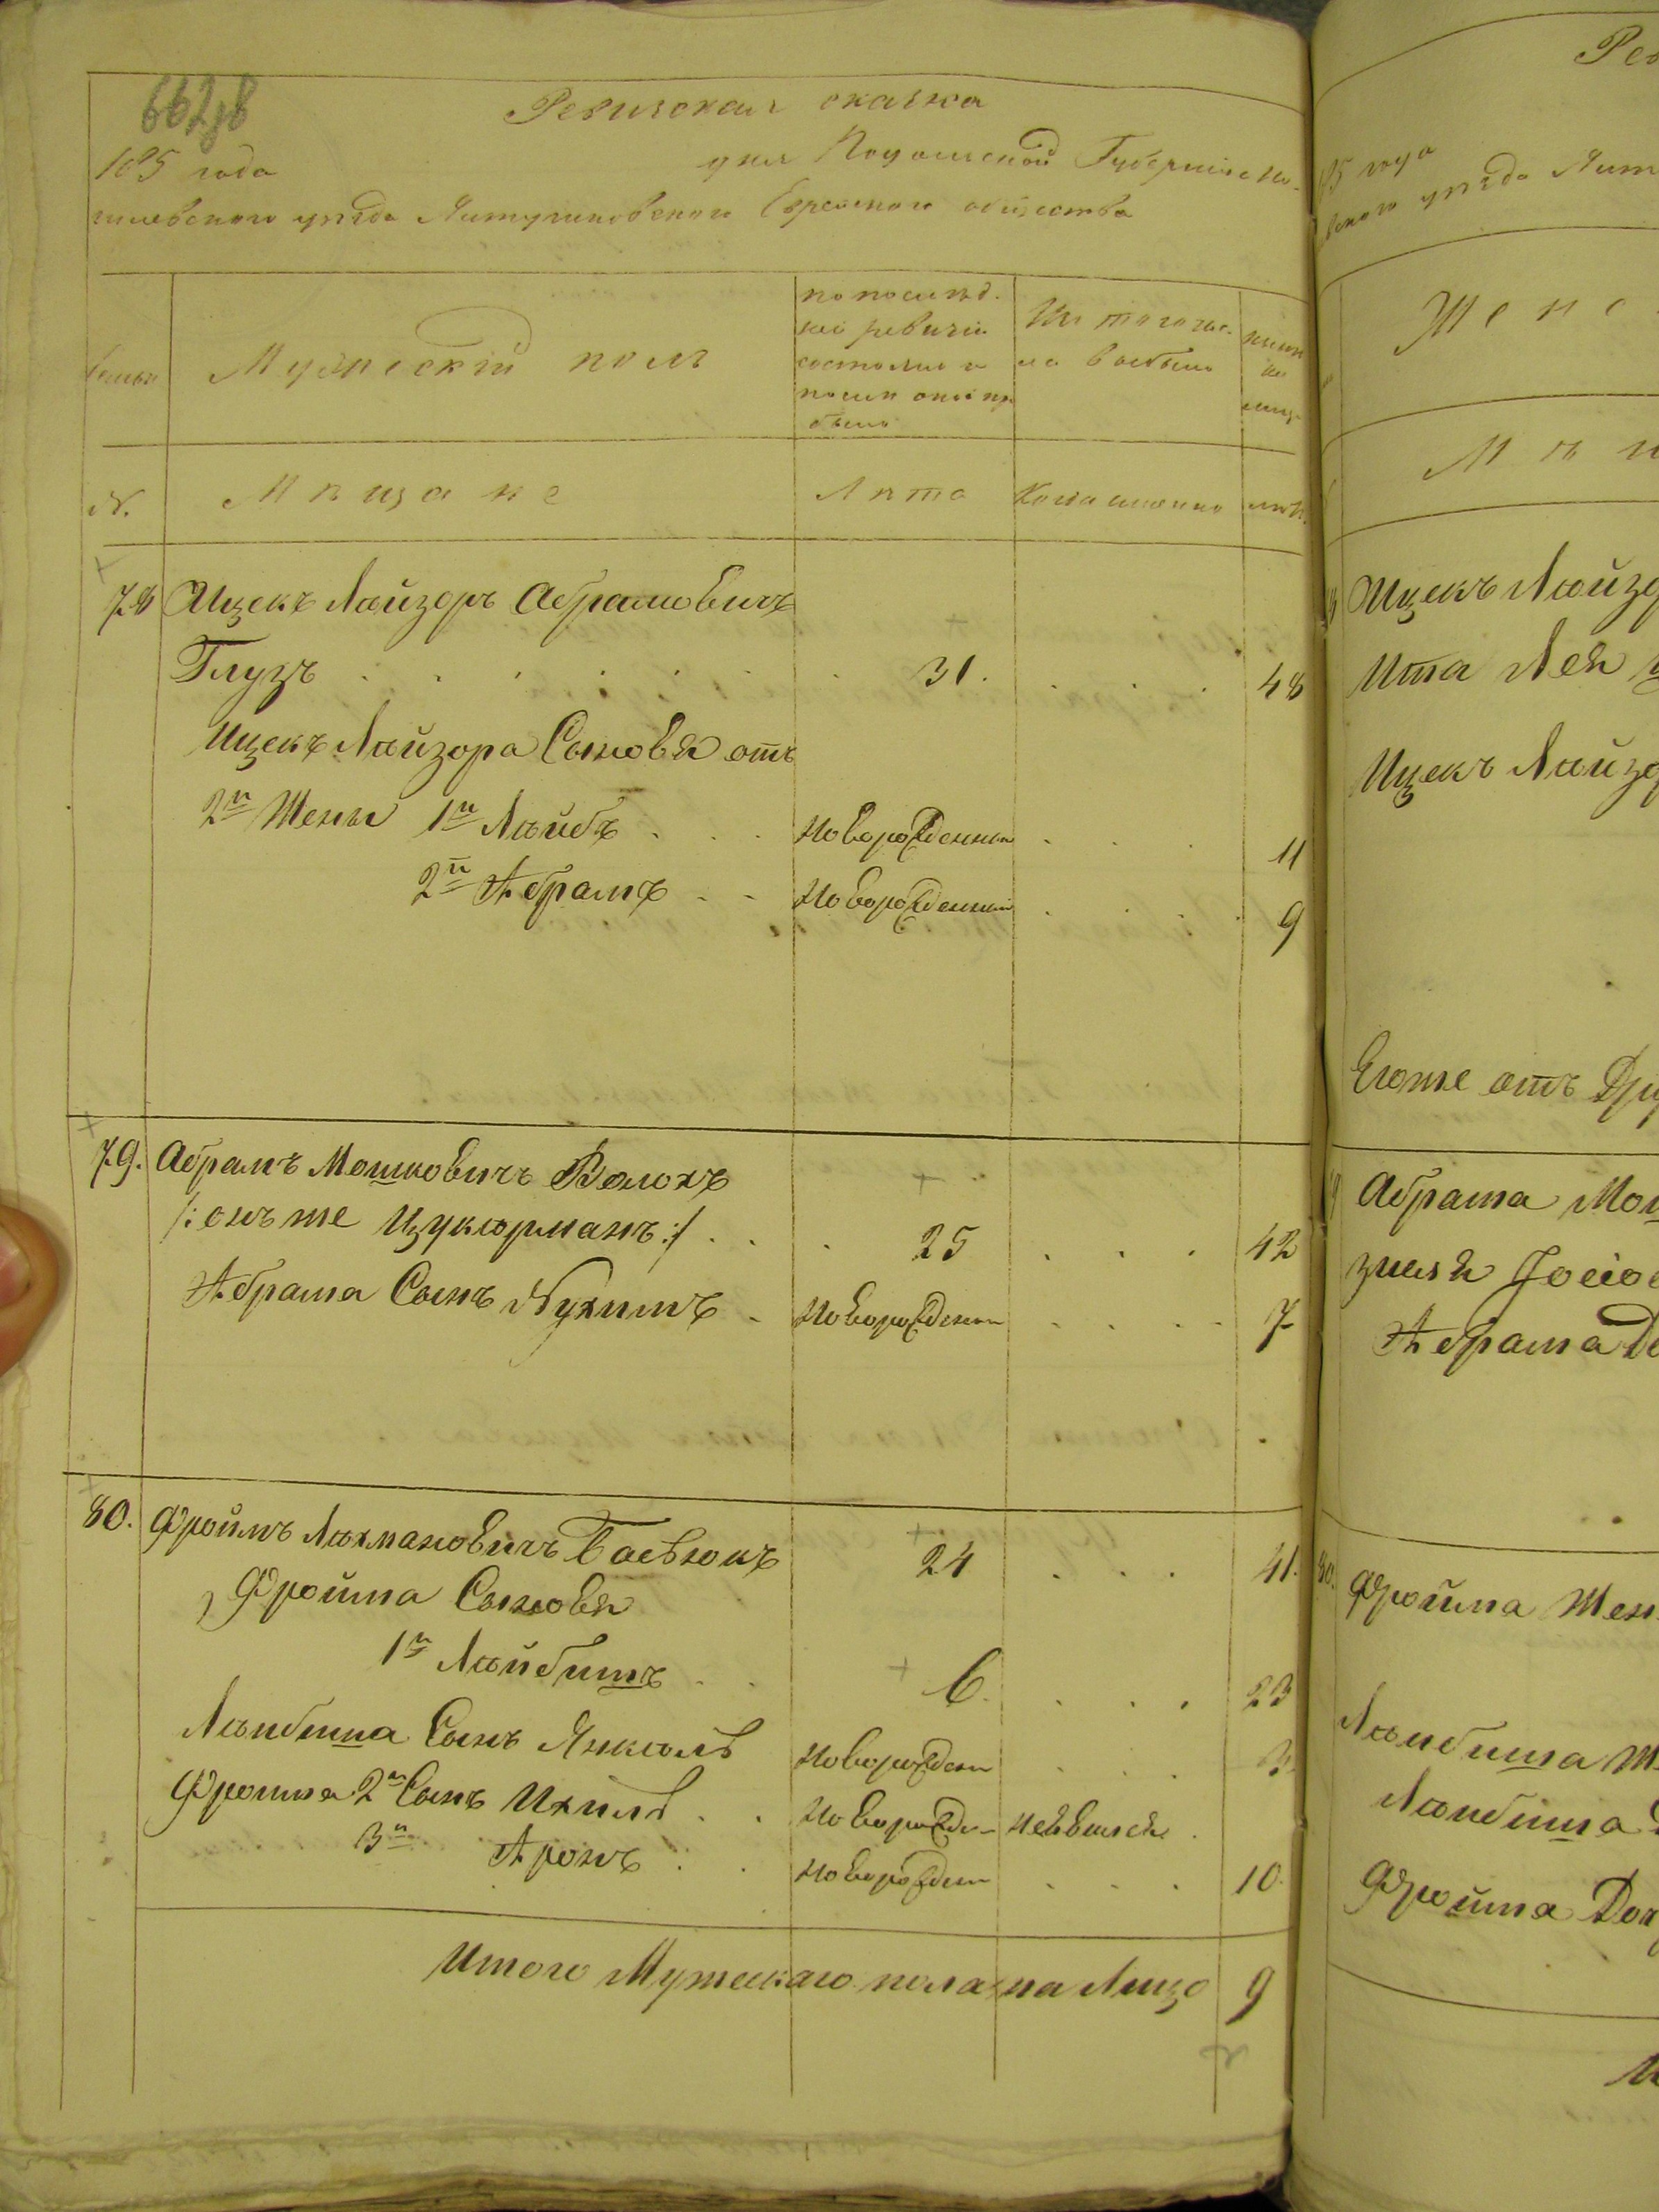 662 78
Ревизская сказка
185 года дня Подольской Губерніи Мо-
гилевскаго уѣзда Лугинковского Еврейского общества
семьи
Мужескій полъ
по послѣд.
ней ревизіи
состояло и
послѣ оной при
было
Изъ того чис-
ла выбыло
нынѣ
на
лицо
№.
Мѣщане
Лѣта
Когда именно
лѣтъ
78 Ицекъ Лейзоръ Абрамовичъ
Глузъ 31. 48
Ицекъ Лейзора Сыновья отъ
2й Жены 1й Лейбъ Новорожденный 11
2й Абрамъ Новорожденный 9
79. Абрамъ Мошковичъ Волохъ
/: онъ же Цукерманъ :/ 25 42
Абрама Сынъ Нухимъ Новорожденн 7
80. Фроимъ Лахмановичъ Баевюкъ 24 41.
Фройма Сыновья
1й Лейбишъ 6. 23
Лейбиша Сынъ Янкель Новорожден 3
Фроима 2й Сынъ Ихиль Новорожде- неявился
3й Аронъ Новорожден 10.
Итого Мужескаго пола на Лицо 9
Рев
5 года
вского уѣзда
Женс
Мѣщ
Ицекъ Лейзо
Ита Лея
Ицекъ Лейзо
Егоже отъ Дру
Абрама Мош
Абрама До
80. Фройма Жен
Лейбиша Ж
Лейбиша
Фройма Доч